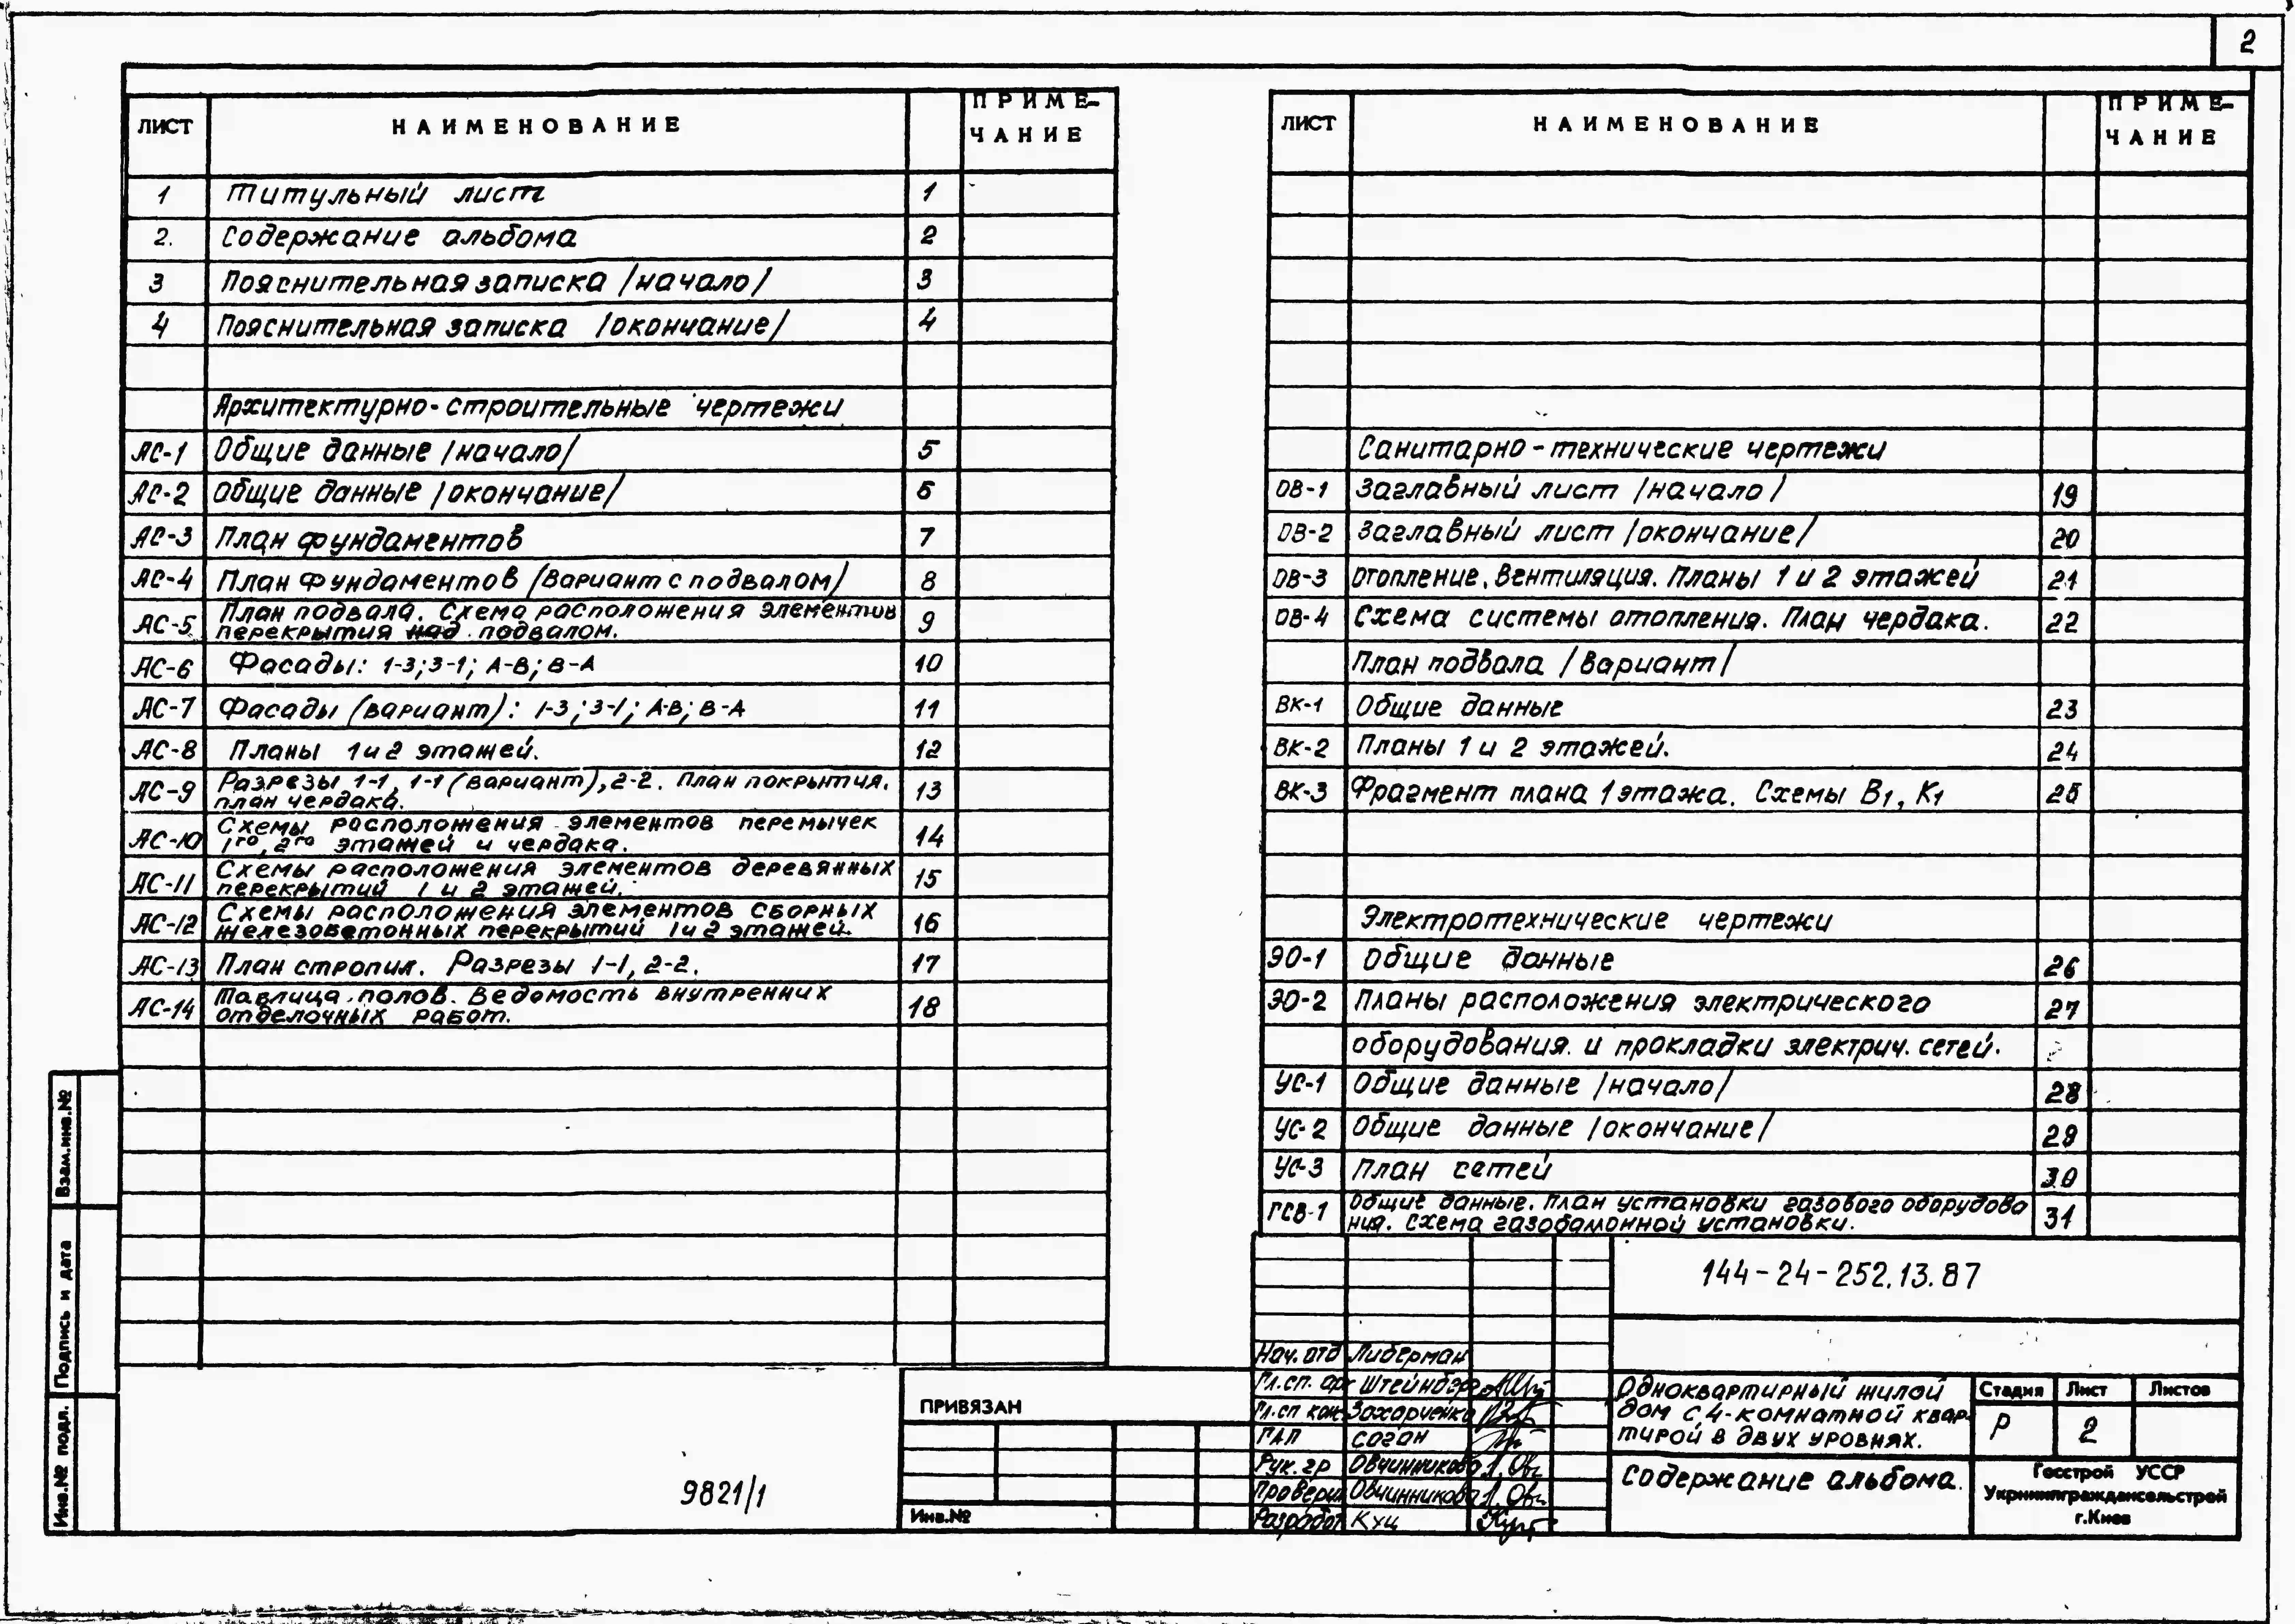 2
ЛИСТ НАИМЕНОВАНИЕ ПРИМЕ-
ЧАНИЕ
1 Титульный лист 1
2. Содержание альбома 2
3 Пояснительная записка /начало/ 3
4 Пояснительная записка /окончание/ 4
Архитектурно-строительные чертежи
АС-1 Общие данные /начало/ 5
АС-2 Общие данные /окончание/ 6
АС-3 План фундаментов 7
АС-4 План фундаментов (вариант с подвалом) 8
АС-5 План подвала. Схема расположения элементов
перекрытия над подвалом. 9
АС-6 Фасады: 1-3; 3-1; А-В; В-А 10
АС-7 Фасады (вариант): 1-3; 3-1; А-В; В-А 11
АС-8 Планы 1 и 2 этажей. 12
АС-9 Разрезы 1-1, 1-1 (вариант), 2-2. План покрытия,
план чердака. 13
АС-10 Схемы расположения элементов перемычек
1го, 2го этажей и чердака. 14
АС-11 Схемы расположения элементов деревянных
перекрытий 1 и 2 этажей. 15
АС-12 Схемы расположения элементов сборных
железобетонных перекрытий 1 и 2 этажей. 16
АС-13 План стропил. Разрезы 1-1, 2-2. 17
АС-14 Таблица полов. Ведомость внутренних
отделочных работ. 18
ЛИСТ НАИМЕНОВАНИЕ ПРИМЕ-
ЧАНИЕ
Санитарно-технические чертежи
ОВ-1 Заглавный лист /начало/ 19
ОВ-2 Заглавный лист /окончание/ 20
ОВ-3 Отопление, вентиляция. Планы 1 и 2 этажей 21
ОВ-4 Схема системы отопления. План чердака. 22
План подвала /вариант/
ВК-1 Общие данные 23
ВК-2 Планы 1 и 2 этажей. 24
ВК-3 Фрагмент плана 1 этажа. Схемы В1, К1 25
Электротехнические чертежи
ЭО-1 Общие данные 26
ЭО-2 Планы расположения электрического 27
оборудования и прокладки электрич. сетей.
УС-1 Общие данные /начало/ 28
УС-2 Общие данные /окончание/ 29
УС-3 План сетей 30
ГСВ-1 Общие данные. План установки газового оборудова
ния. Схема газобаллонной установки. 31
Взам.инв.№
Подпись и дата
Инв.№ подл.
9821/1
ПРИВЯЗАН
Инв.№
144-24-252.13.87
Нач. отд Либерман
Гл.сп. ар Штейнбер
Гл.сп кон Захарченко
ГАП Саган
Рук. гр Овчинникова
Провери Овчинникова
Разработ Куц
Одноквартирный жилой
дом с 4-комнатной квар-
тирой в двух уровнях.
Стадия Лист Листов
Р 2
Содержание альбома.
Госстрой УССР
Укрниипграждансельстрой
г.Киев